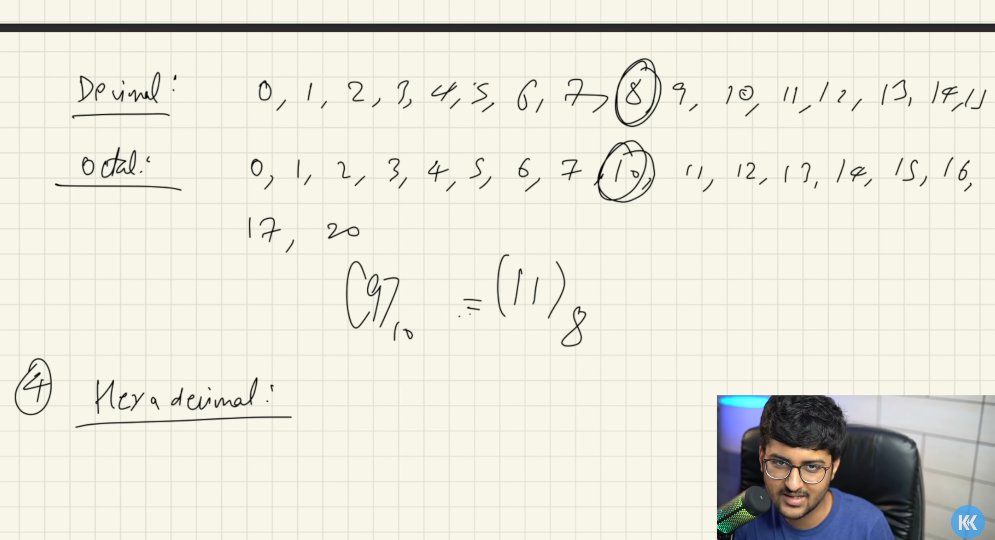 Decimal: 0, 1, 2, 3, 4, 5, 6, 7, 8 9, 10, 11, 12, 13, 14, 15
Octal: 0, 1, 2, 3, 4, 5, 6, 7, 10, 11, 12, 13, 14, 15, 16,
17, 20
(9)10 = (11)8
4 Hexadecimal:
KK